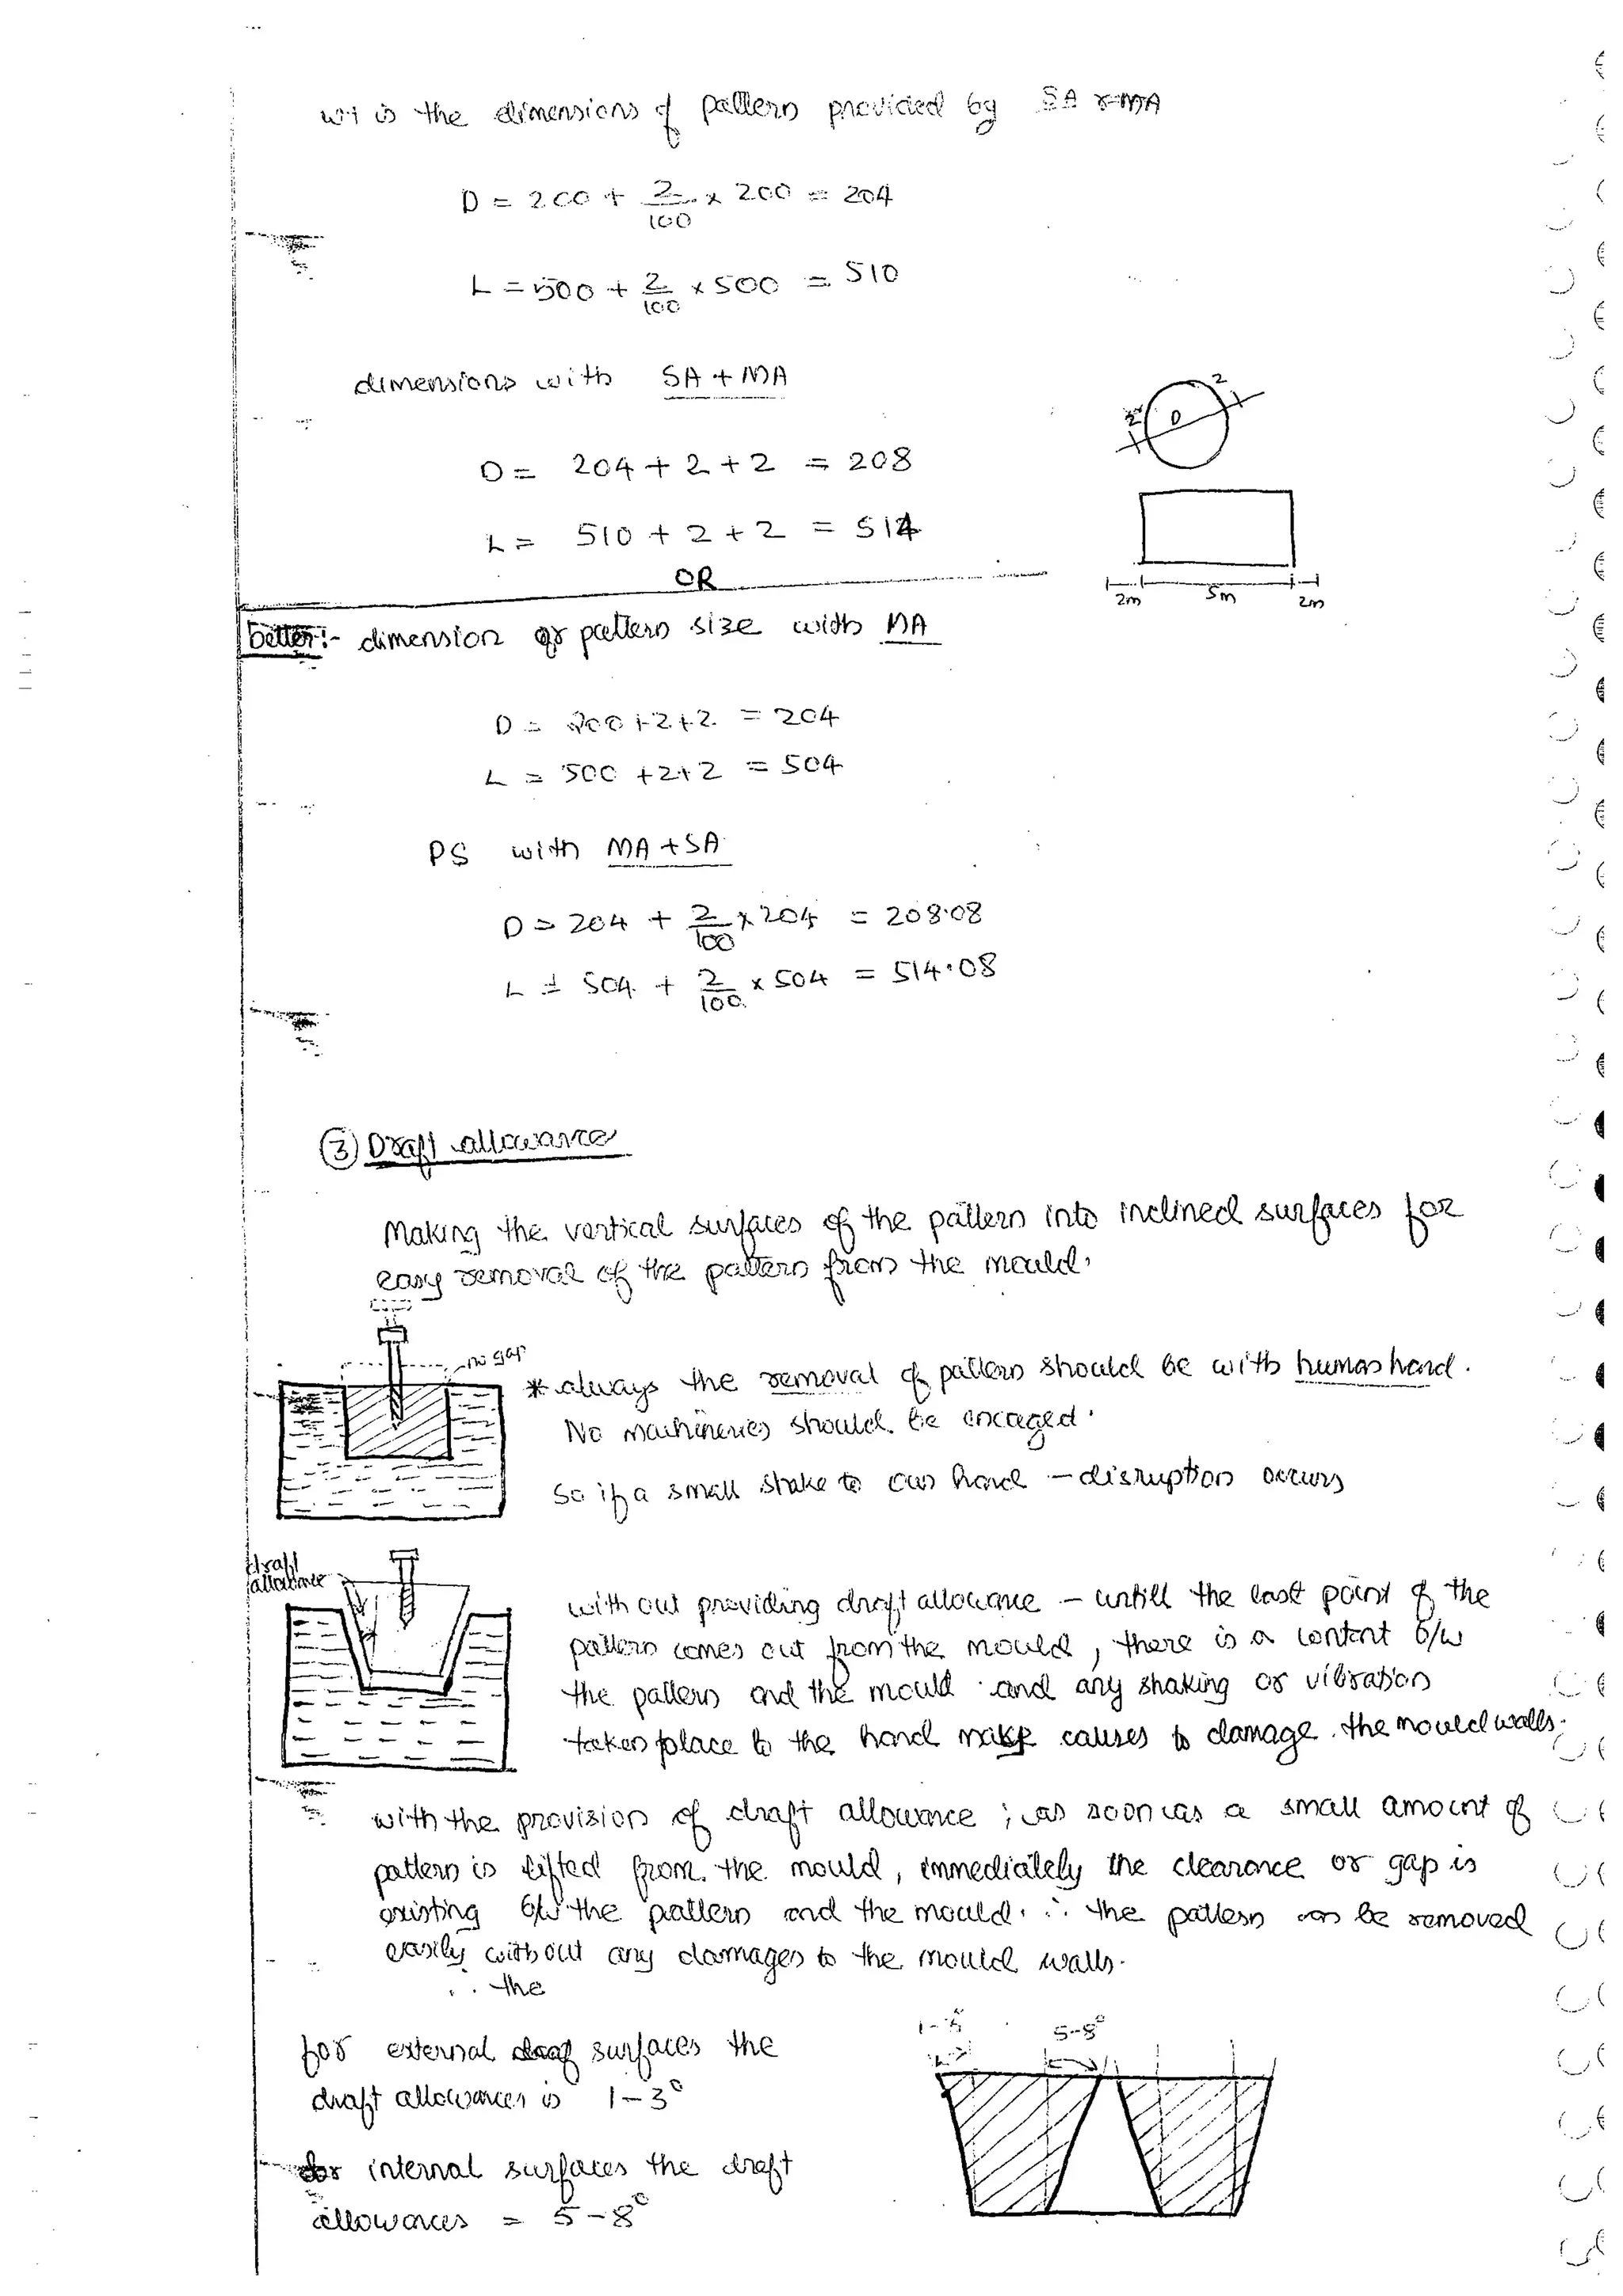 wt is the dimensions of pattern provided by SA & MA
D = 200 + 2/100 x 200 = 204
L = 500 + 2/100 x 500 = 510
dimensions with SA + MA
D = 204 + 2 + 2 = 208
L = 510 + 2 + 2 = 514
2 D 2
2m 5m 2m
OR
better:- dimension of pattern size with MA
D = 200 + 2 + 2 = 204
L = 500 + 2 + 2 = 504
PS with MA + SA
D = 204 + 2/100 x 204 = 208.08
L = 504 + 2/100 x 504 = 514.08
③ Draft allowance
Making the vertical surfaces of the pattern into inclined surfaces for
easy removal of the pattern from the mould.
no gap
* always the removal of pattern should be with human hand.
No machineries should be encaged.
So if a small shake to our hand – disruption occurs
draft
allowance
with out providing draft allowance – untill the last point of the
pattern comes out from the mould, there is a content b/w
the pattern and the mould and any shaking or vibration
taken place to the hand causes to damage the mould walls.
with the provision of draft allowance ; as soon as a small amount of
pattern is lifted from the mould, immediately the clearance or gap is
existing b/w the pattern and the mould. ∴ the pattern can be removed
easily without any damages to the mould walls.
∴ the
for external surfaces the
draft allowances is 1 – 3°
for internal surfaces the draft
allowances = 5 – 8°
5-8°